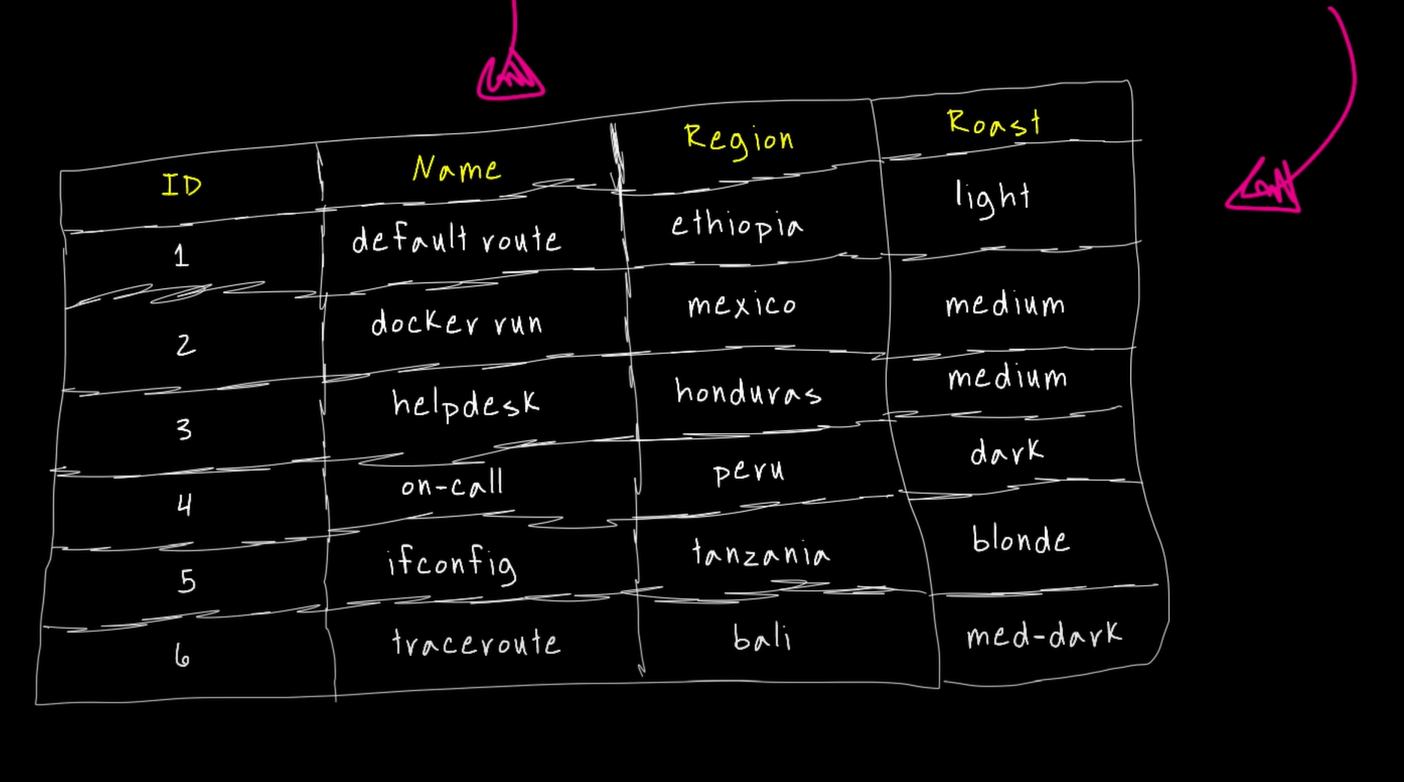 ID Name Region Roast
1 default route ethiopia light
2 docker run mexico medium
3 helpdesk honduras medium
4 on-call peru dark
5 ifconfig tanzania blonde
6 traceroute bali med-dark